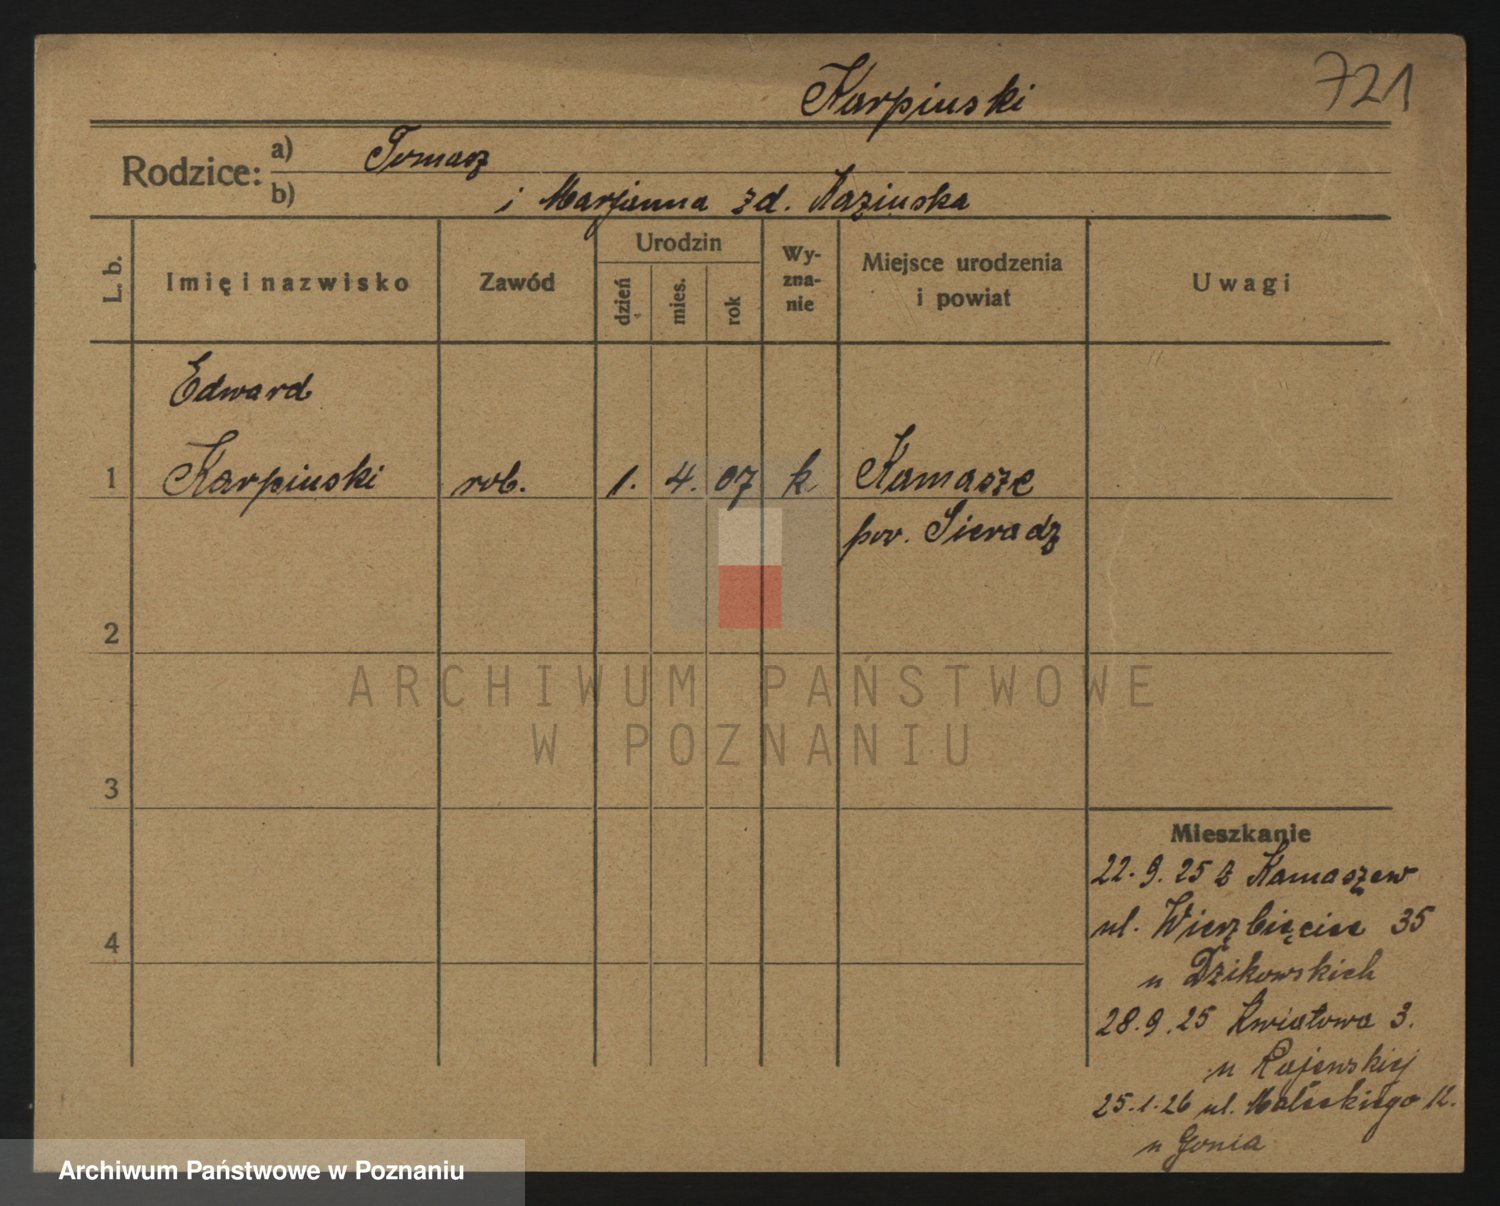 721
Karpinski
Rodzice:
a) Tomasz
b) i Marjanna zd. Kazinska
L. b.
Imię i nazwisko
Zawód
Urodzin
dzień
mies.
rok
Wy-
zna-
nie
Miejsce urodzenia
i powiat
Uwagi
Edward
1 Karpinski rob. 1. 4. 07 k Kamasze
pow. Sieradz
2
3
4
Mieszkanie
22.9.25 z Kamaszew
ul. Wierzbięcice 35
u Dzikowskich
28.9.25 Kwiatowa 3.
u
25.1.26 ul. Małeckiego
u
ARCHIWUM PAŃSTWOWE
W POZNANIU
Archiwum Państwowe w Poznaniu